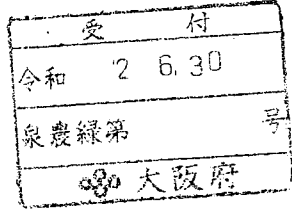 受 付
令和 '2 6.30
泉農緑第 号
大阪府